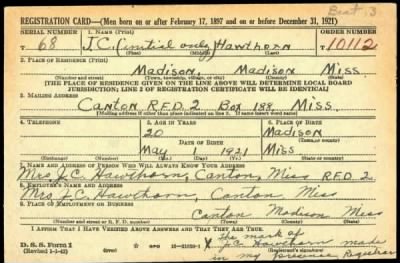 Beat. 3
REGISTRATION CARD—(Men born on or after February 17, 1897 and on or before December 31, 1921)
SERIAL NUMBER 1. NAME (Print) ORDER NUMBER
T 68 J.C. (initial only) Hawthorn 10112
2. PLACE OF RESIDENCE (Print)
Madison, Madison Miss
(Number and street) (Town, township, village, or city) (County) (State)
[THE PLACE OF RESIDENCE GIVEN ON THE LINE ABOVE WILL DETERMINE LOCAL BOARD
JURISDICTION; LINE 2 OF REGISTRATION CERTIFICATE WILL BE IDENTICAL]
3. MAILING ADDRESS
Canton R.F.D. 2 Box 188 Miss.
(Mailing address if other than place indicated on line 2. If same insert word same)
4. TELEPHONE 5. AGE IN YEARS 6. PLACE OF BIRTH
20 Madison
DATE OF BIRTH (Town or county)
May 1 1921 Miss
(Exchange) (Number) (Mo.) (Day) (Yr.) (State or country)
7. NAME AND ADDRESS OF PERSON WHO WILL ALWAYS KNOW YOUR ADDRESS
Mrs J.C. Hawthorn, Canton, Miss R.F.D. 2
8. EMPLOYER'S NAME AND ADDRESS
Mrs J.C. Hawthorn Canton Miss
9. PLACE OF EMPLOYMENT OR BUSINESS
Canton Madison Miss
(Number and street or R. F. D. number) (Town) (County) (State)
I AFFIRM THAT I HAVE VERIFIED ABOVE ANSWERS AND THAT THEY ARE TRUE.
D. S. S. Form 1 GPO X The mark of
(Revised 1-1-42) J.C. Hawthorn made
in my presence